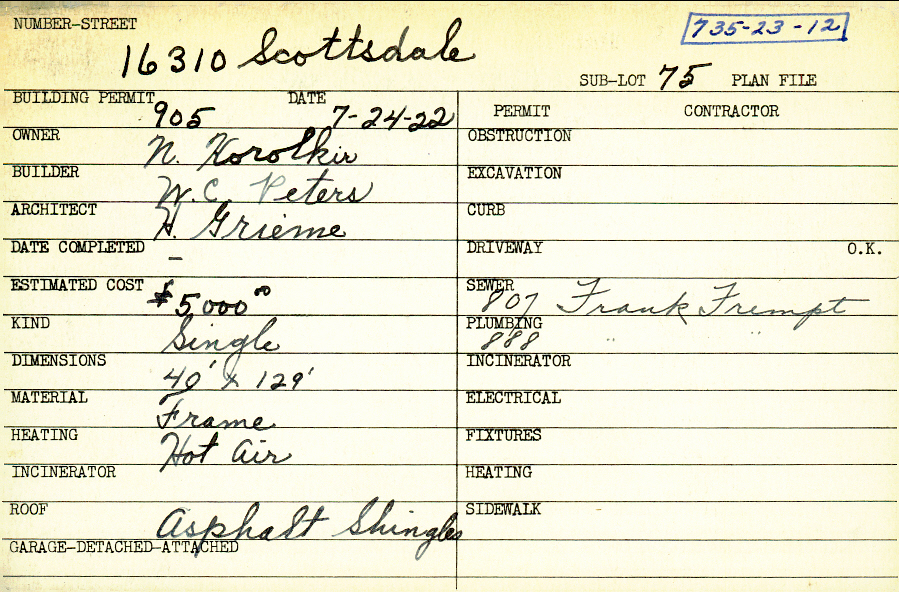 NUMBER-STREET
16310 Scottsdale
735-23-12
SUB-LOT 75 PLAN FILE
BUILDING PERMIT 905 DATE 7-24-22
OWNER N.
BUILDER W.C. Peters
ARCHITECT H. Grieme
DATE COMPLETED –
ESTIMATED COST $5000 00
KIND Single
DIMENSIONS 40' x 129'
MATERIAL Frame
HEATING Hot Air
INCINERATOR
ROOF Asphalt Shingles
GARAGE-DETACHED-ATTACHED
PERMIT CONTRACTOR
OBSTRUCTION
EXCAVATION
CURB
DRIVEWAY O.K.
SEWER 807 Frank Frempt
PLUMBING 888 " "
INCINERATOR
ELECTRICAL
FIXTURES
HEATING
SIDEWALK